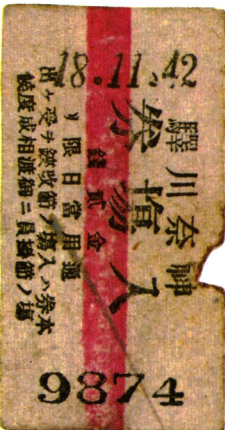 18.11.
神奈川驛
入塲券
金貳錢
通用當日限リ
本券ハ入塲ノ節改鋏ヲ受ケ出
塲ノ節係員ニ御渡相成度候
9874